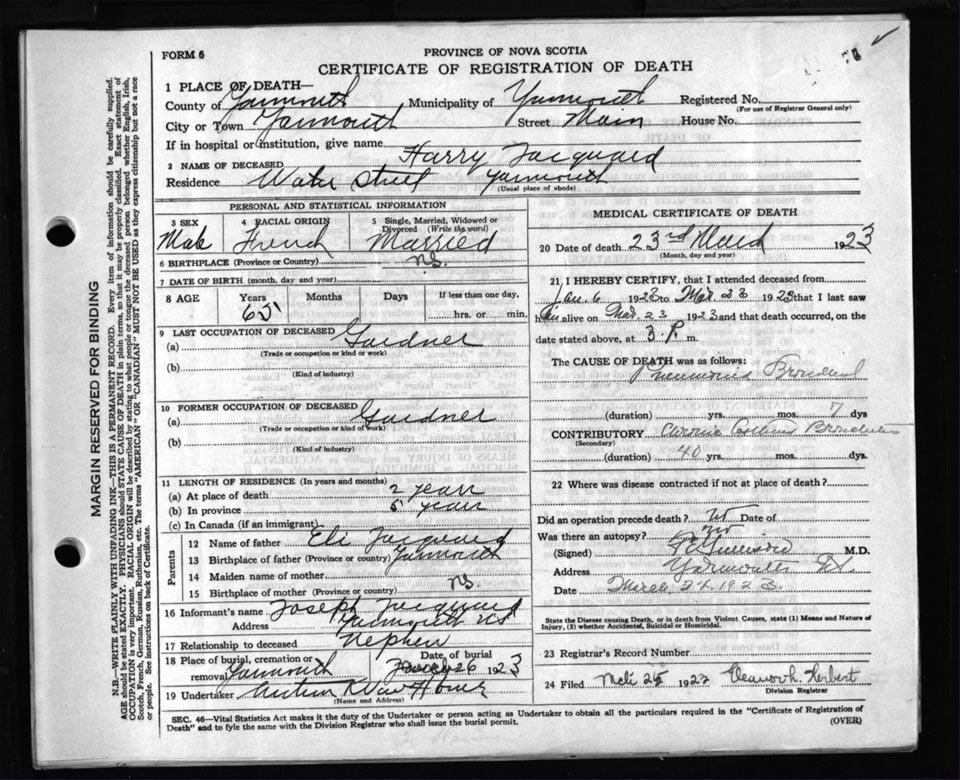 FORM 6
PROVINCE OF NOVA SCOTIA
CERTIFICATE OF REGISTRATION OF DEATH
1 PLACE OF DEATH—
County of Yarmouth Municipality of Yarmouth Registered No.
(For use of Registrar General only)
City or Town Yarmouth Street Main House No.
If in hospital or institution, give name
2 NAME OF DECEASED Harry Jacquard
Residence Water Street Yarmouth
(Usual place of abode)
PERSONAL AND STATISTICAL INFORMATION
3 SEX 4 RACIAL ORIGIN 5 Single, Married, Widowed or
Divorced (Write the word)
Male French Married
6 BIRTHPLACE (Province or Country) N.S.
7 DATE OF BIRTH (month, day and year)
8 AGE Years Months Days If less than one day,
65 hrs. or min.
9 LAST OCCUPATION OF DECEASED
(a) Gardner
(Trade or occupation or kind or work)
(b)
(Kind of industry)
10 FORMER OCCUPATION OF DECEASED
(a) Gardner
(Trade or occupation or kind of work)
(b)
(Kind of industry)
11 LENGTH OF RESIDENCE (In years and months)
(a) At place of death 2 years
(b) In province years
(c) In Canada (if an immigrant)
Parents
12 Name of father Eli Jacquard
13 Birthplace of father (Province or country) Yarmouth
14 Maiden name of mother
15 Birthplace of mother (Province or country) N.S.
16 Informant's name Joseph Jacquard
Address Yarmouth NS
17 Relationship to deceased Nephew
18 Place of burial, cremation or Date of burial
removal Yarmouth March 26 1923
19 Undertaker
(Name and Address)
MEDICAL CERTIFICATE OF DEATH
20 Date of death 23rd March 1923
(Month, day and year)
21 I HEREBY CERTIFY, that I attended deceased from
Jan. 6 1923 to Mar. 23 1923 that I last saw
h alive on Mar. 23 1923 and that death occurred, on the
date stated above, at 3 P. m.
The CAUSE OF DEATH was as follows:
Pneumonia Bronchial
(duration) yrs. mos. 7 dys
CONTRIBUTORY Chronic Bronchitis
(Secondary)
(duration) 40 yrs. mos. dys.
22 Where was disease contracted if not at place of death?
Did an operation precede death? No Date of
Was there an autopsy? No
(Signed) M.D.
Address Yarmouth
Date March 24 1923
State the Disease causing Death, or in death from Violent Causes, state (1) Means and Nature of
Injury, (2) whether Accidental, Suicidal or Homicidal.
23 Registrar's Record Number
24 Filed 192 Eleanor L. Herbert
Division Registrar
SEC. 46—Vital Statistics Act makes it the duty of the Undertaker or person acting as Undertaker to obtain all the particulars required in the "Certificate of Registration of
Death" and to fyle the same with the Division Registrar who shall issue the burial permit.
(OVER)
MARGIN RESERVED FOR BINDING
N.B.—WRITE PLAINLY WITH UNFADING INK—THIS IS A PERMANENT RECORD. Every item of information should be carefully supplied.
AGE should be stated EXACTLY. PHYSICIANS should STATE CAUSE OF DEATH in plain terms, so that it may be properly classified. Exact statement of
OCCUPATION is very important. RACIAL ORIGIN will be described by stating to what people or tongue the deceased person belonged, whether English, Irish,
Scotch, French, German, Russian, Ruthenian, etc. The terms "AMERICAN" OR "CANADIAN" MUST NOT BE USED as they express citizenship but not a race
or people. See instructions on back of Certificate.